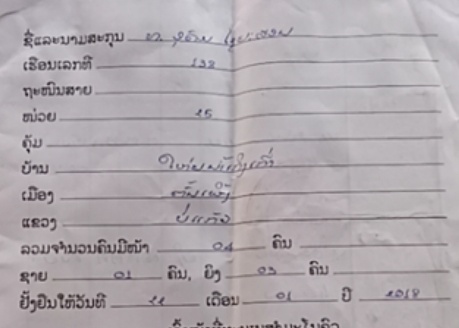 ຊື່ແລະນາມສະກຸນ ທ.
ເຮືອນເລກທີ 132
ຖະໜົນສາຍ
ໜ່ວຍ 25
ຄຸ້ມ
ບ້ານ
ເມືອງ ຕົ້ນເຜິ້ງ
ແຂວງ ບໍ່ແກ້ວ
ລວມຈຳນວນຄົນມີໜ້າ 04 ຄົນ
ຊາຍ 01 ຄົນ, ຍິງ 03 ຄົນ
ຢັ້ງຢືນໃຫ້ວັນທີ 22 ເດືອນ 01 ປີ 2018